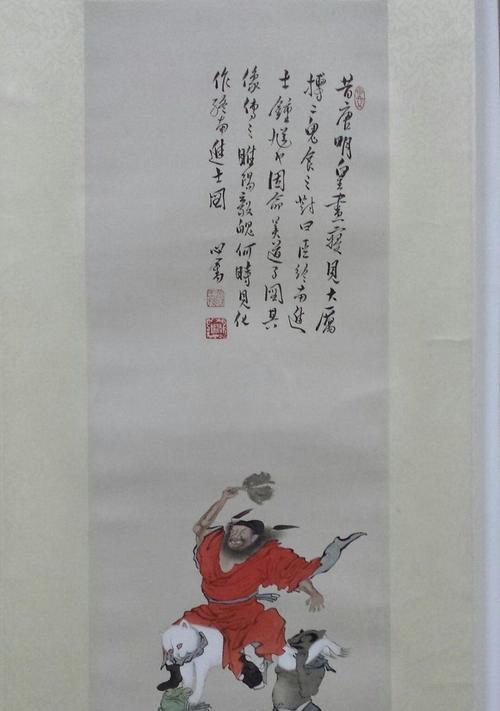 昔唐明皇晝寢見大厲
搏二鬼食之對曰臣終南進
士鍾馗也因命吳道子圖其
像傳之睢陽毅魄何時見化
作終南進士圖
心畬